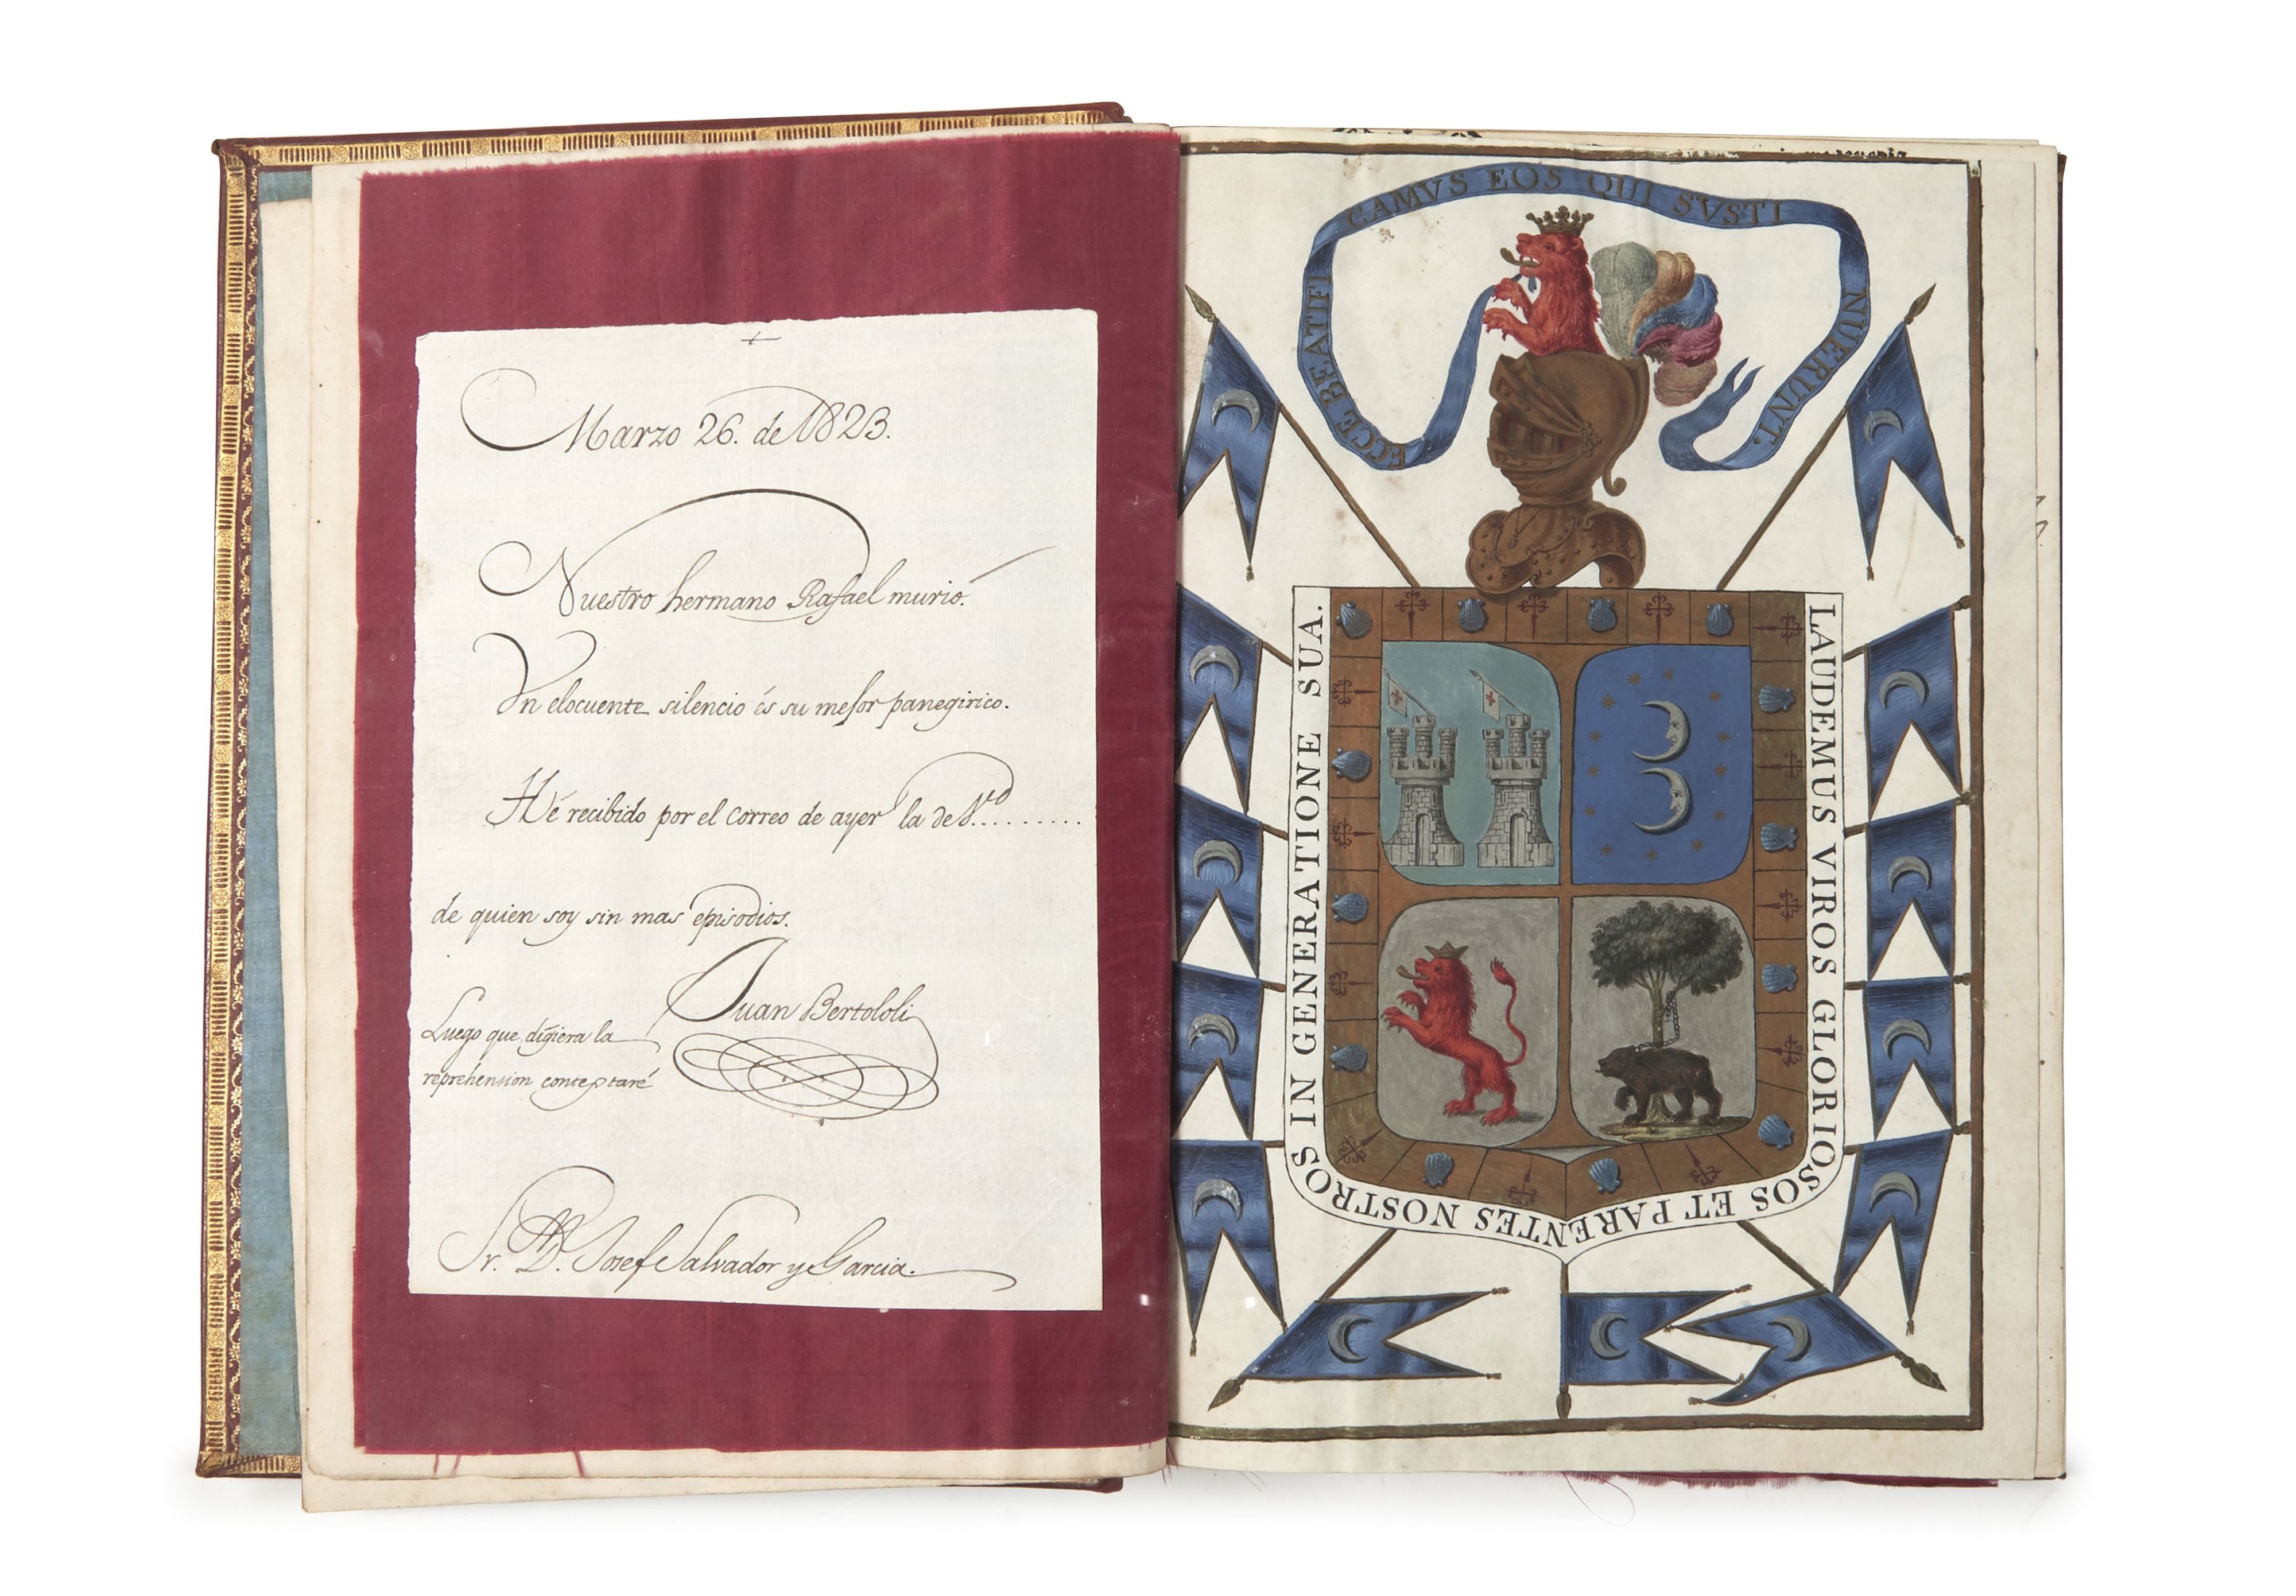 Marzo 26. de 1823.
Nuestro hermano Rafael murió.
Un elocuente silencio és su mejor panegirico.
Hé recibido por el correo de ayer la de V.md.........
de quien soy sin mas episodios.
Juan Bertololi
Luego que digiera la
reprehension contextaré
Sr. D. Josef Salvador y Garcia.
ECCE BEATIFICAMVS EOS QUI SVSTINUERUNT.
LAUDEMUS VIROS GLORIOSOS ET PARENTES NOSTROS IN GENERATIONE SUA.